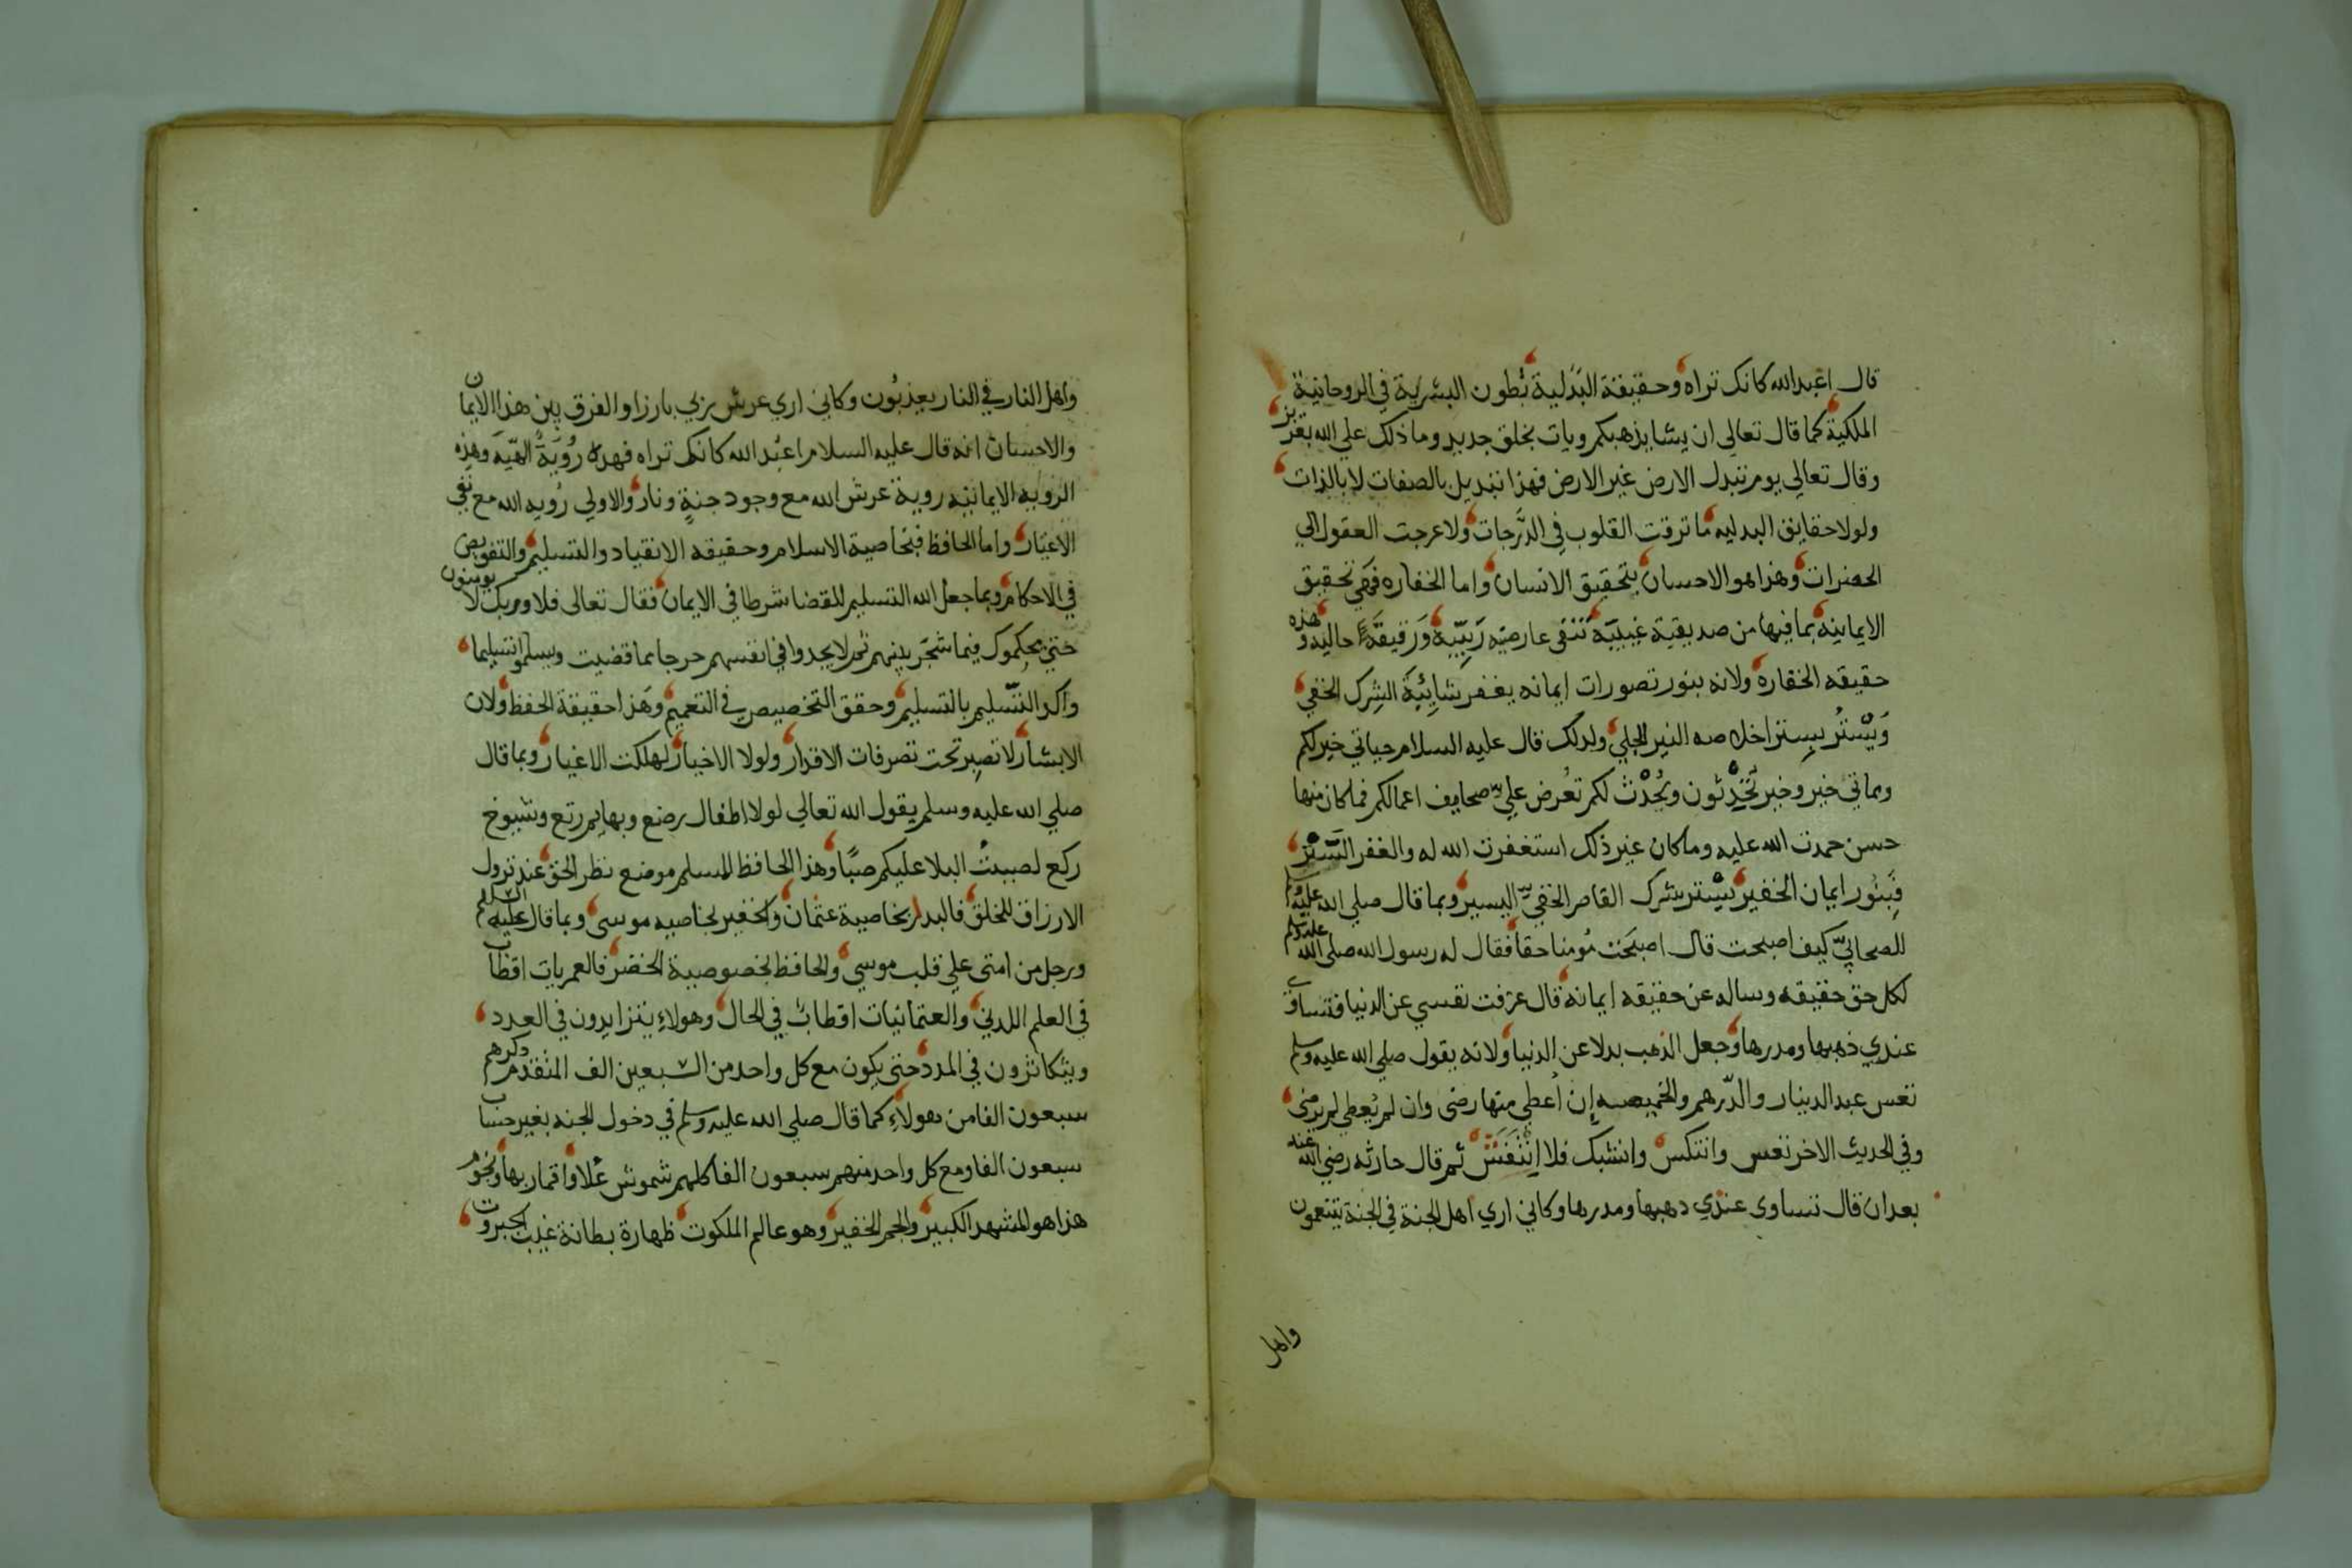 قال اعبد الله كانك تراه وحقيقة البَدَلية بُطون البشرية في الروحانية
الملكية كما قال تعالي ان يشا يذهبكم ويات بخلق جديد وما ذلك علي الله بعزيز
وقال تعالي يوم تبدل الارض غير الارض فهذا تبديل بالصفات لا بالذات
ولولا حقايق البدليه ما ترقت القلوب في الدَّرجات ولا عرجت العقول الي
الحضرات وهذا هو الاحسان بتحقيق الانسان واما الخفاره فهي تحقيق
الايمانيه بما فيها من صديقية غيبيَّه تنفى عارضيه رَيبيّية وَرقيقَة حاليه وهذه
حقيقه الخفاره ولانه بنور تصورات ايمانه يغفر شايِبَة الشِرك الخفي
وَيَسْتُر بسِتر اخلاصه النير الجلي ولدلك قال عليه السلام حياتي خير لكم
ومماتي خير وخير تُحَدِّثون ويُحْدَث لكم تعُرض عليّ صحايف اعمالكم فما كان منها
حسن حمدت الله عليه وما كان غير ذلك استغفرت الله له والغفر السَّتْر
فَبنور ايمان الخفير يَسْتتر شرك القاصر الخفيّ اليسير وبما قال صلي الله عليه وسلم
للصحابيّ كيف اصبحت قال اصبَحَت مُومنا حقا فقال له رسول الله صلى الله عليه وسلم
لكل حق حقيقه وساله عن حقيقه ايمانه قال عزفت نفسي عن الدنيا فتساوي
عندي ذهبها ومدرها وجعل الذهب بدلا عن الدنيا ولانه يقول صلي الله عليه وسلم
تعس عبد الدينار والدّرهم والخميصه إن أعطي منها رضى وان لم يُعطي لم يرضى
وفي الحديث الاخر تعس وانتكس وانشبك فلا انْتَقَش ثم قال حارثه رضي الله عنه
بعد ان قال تساوى عندي دهبها ومدرها وكاني اري اهل الجنة في الجنة يتنعمون
واهل
واهل النار في النار يعذبُون وكاني اري عرش ربي بارزا والفرق بين هذا الايمان
والاحسان انه قال عليه السلام اعبُد الله كانك تراه فهده رُويَةُ الهيّه وهذِه
الرويه الايمانيه روية عرش الله مع وجود جنةٍ ونار والاولي رُويه الله مع نفي
الاغيار واما الحافظ فبخاصية الاسلام وحقيقه الانقياد والتسليم والتفويض
في الاحكام وبما جعل الله التسليم للقضا شرطا في الايمان فقال تعالى فلا وربك لا يومنون
حتي يحكموك فيما شجَر بينهم ثم لا يجدوا في انفسهم حرجا مما قضيت ويسلموا تسليما
واكد التسّليم بالتسليم وحقق التخصيص في التعميم وَهذا حقيقة الحفظ ولان
الابشار لا تصبر تحت تصرفات الاقدار ولولا الاخيار لهلكت الاغيار وبما قال
صلي الله عليه وسلم يقول الله تعالي لولا اطفال رضع وبهايم رتع وشيوخ
ركع لصببتُ البلا عليكم صبًّا وهذا الحافظ المسلم موضع نظر الحق عند نزول
الارزاق للخلق فالبدل بخاصية عثمان والخفير بخاصيه موسى وبما قال عليه السلام
ورجل من امتى علي قلب موسي والحافظ بخصوصية الخضر فالعمريات اقطاب
في العلم اللدني والعثمانيات اقطاب في الحال وهولاءِ يتزايدون في العدد
ويتكاثرون في المدد حتى يكون مع كل واحد من السبعين الف المتقدم ذكرهم
سبعون الفا من هولاءِ كما قال صلي الله عليه وسلم في دخول الجنه بغير حساب
سبعون الفا ومع كل واحد منهم سبعون الفا كلهم شموسُ عُلا واقمار بها ونجوم
هذا هو المشهد الكبير والجم الخفير وهو عالم الملكوت ظهارة بطانة غيب الجبروت